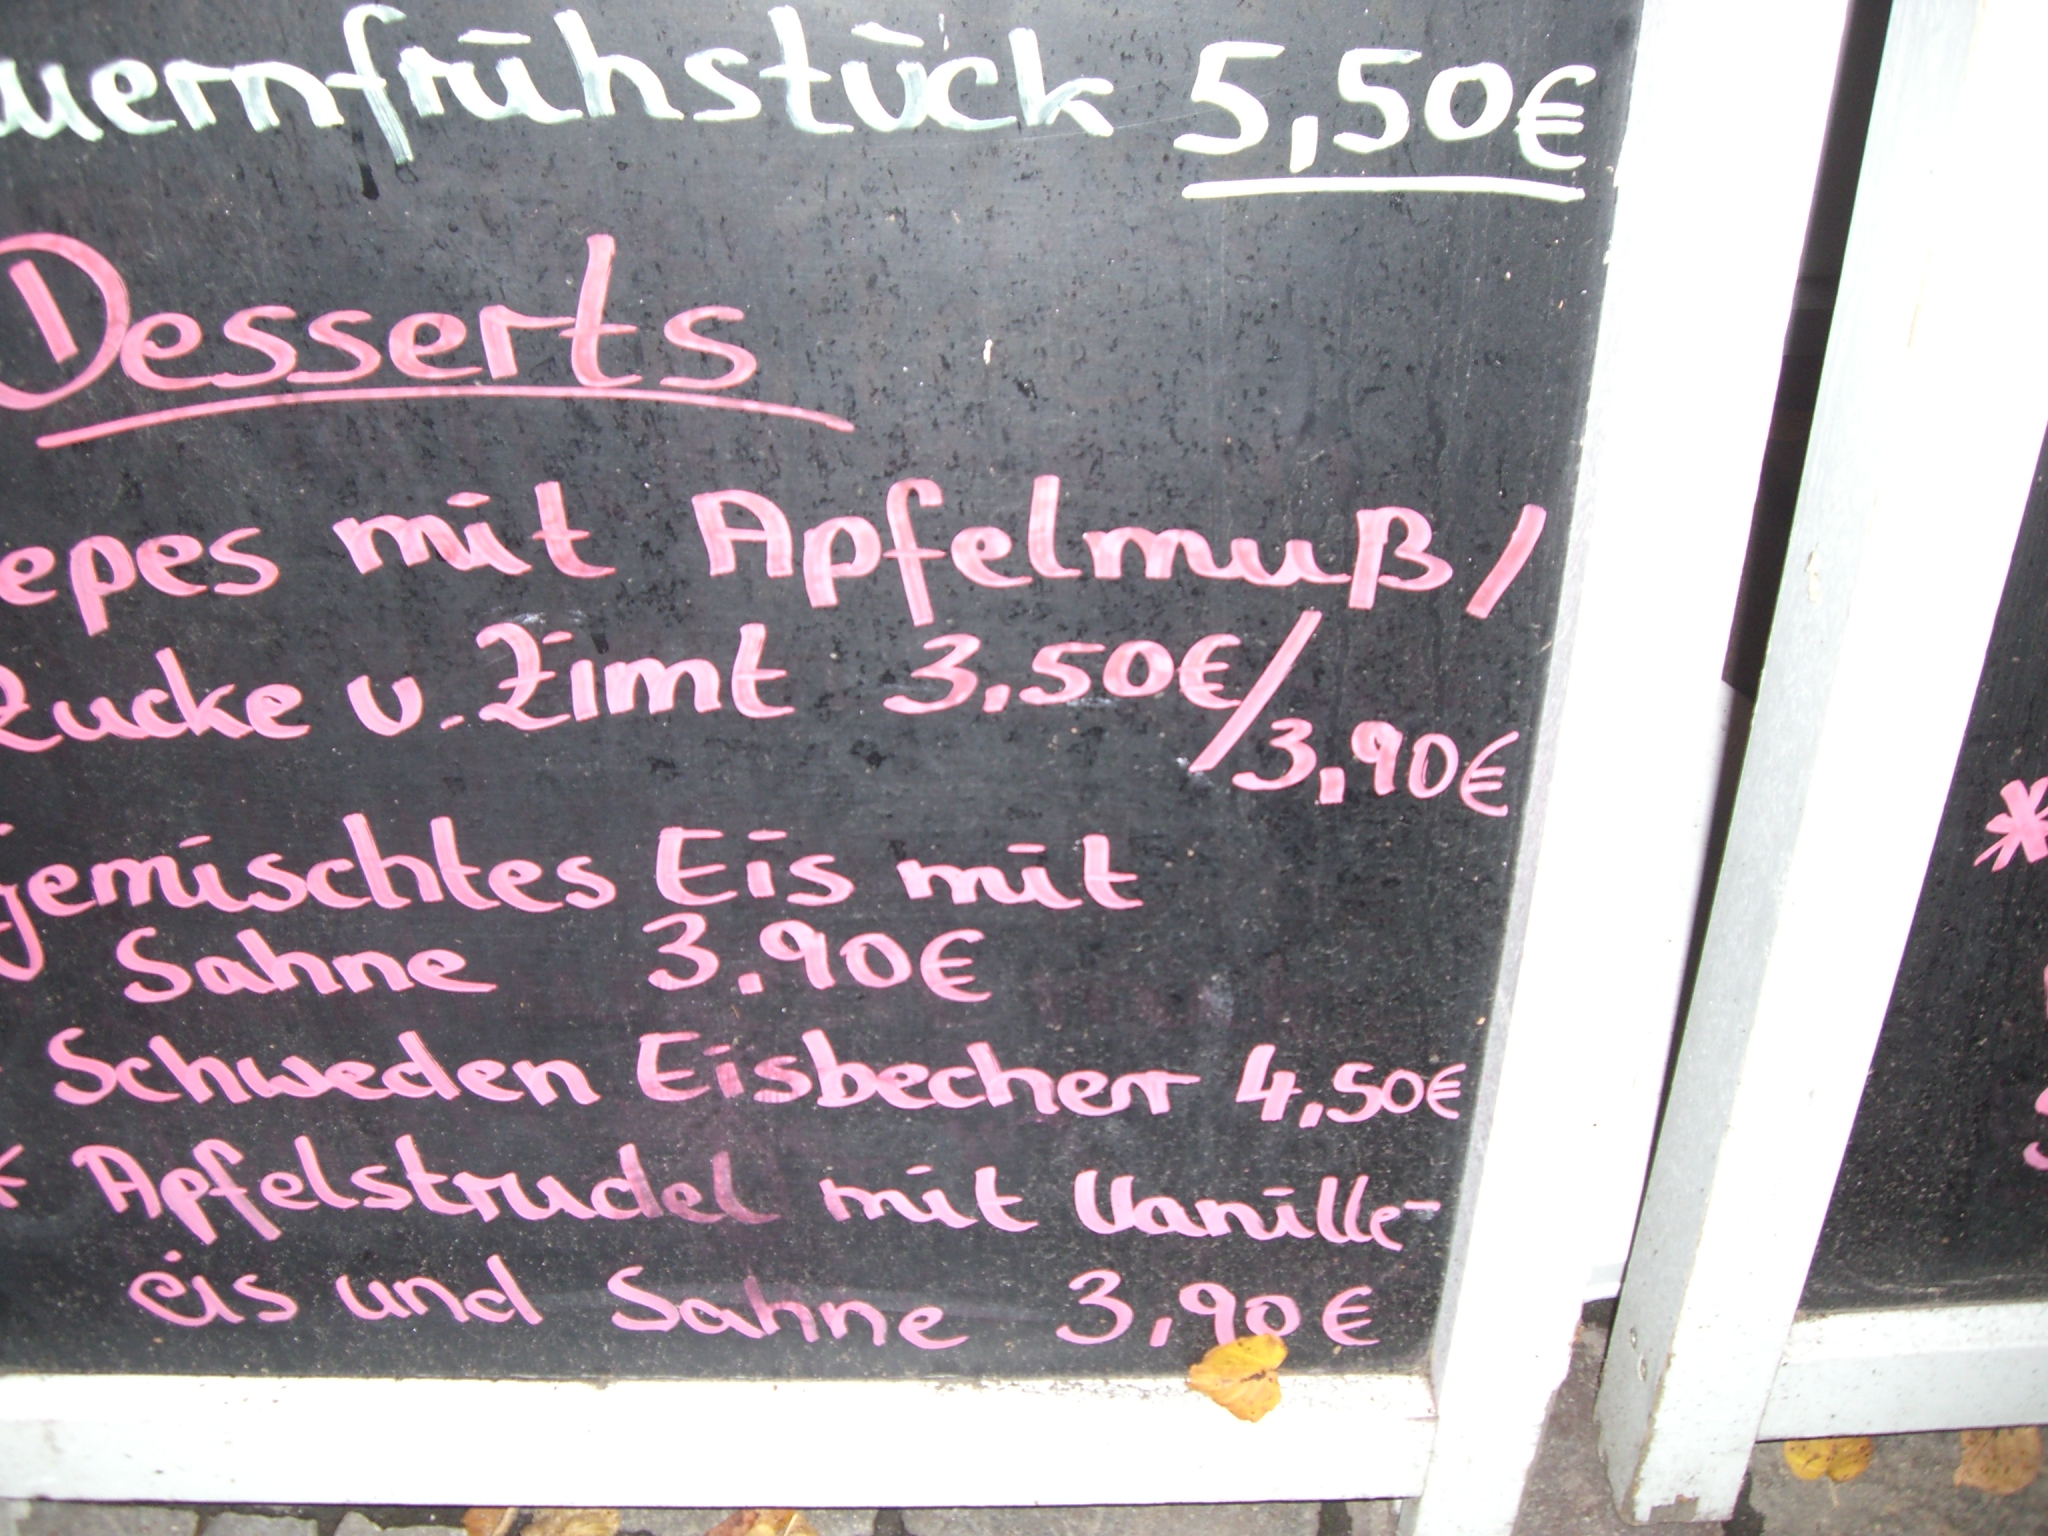 uernfrühstück 5,50€
Desserts
epes mit Apfelmuß/
Zucke u. Zimt 3,50€/
3,90€
gemischtes Eis mit
Sahne 3.90€
Schweden Eisbecher 4,50€
* Apfelstrudel mit Vanille-
eis und Sahne 3,90€
*